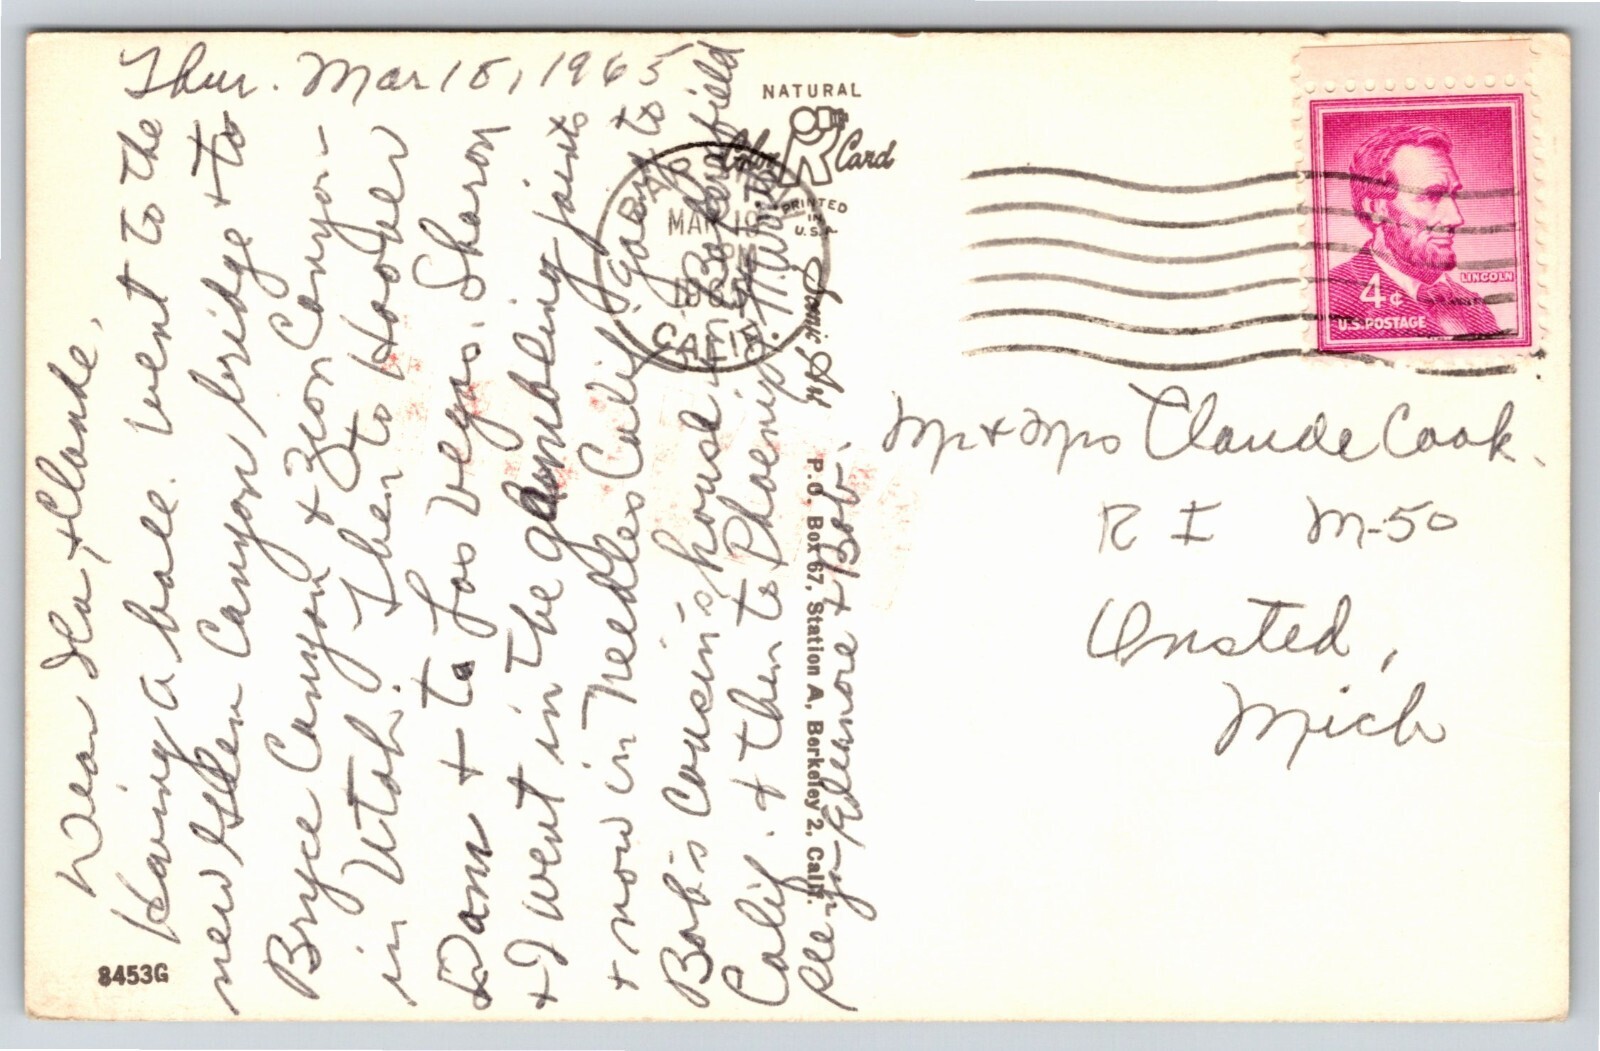 Thur. Mar 18, 1965
Dear Ila & Claude,
Having a ball. Went to the
new Glen Canyon bridge & to
Bryce Canyon & Zion Canyon -
in Utah. Then to Hoover
Dam & to Las Vegas. Sharon
& I went in the gambling joints
& now in Needles Calif going to
Bob's Cousin's house in Bakersfield
Calif. & then to Phoenix
Elenore & Bob.
8453G
NATURAL
Color Card
PRINTED
IN
U.S.A.
Scenic Art
P.O. Box 67, Station A, Berkeley 2, Calif.
MAR 19
PM
1965
CALIF.
LINCOLN
4¢
U.S. POSTAGE
Mr & Mrs Claude Cook.
R I M-50
Onsted,
Mich